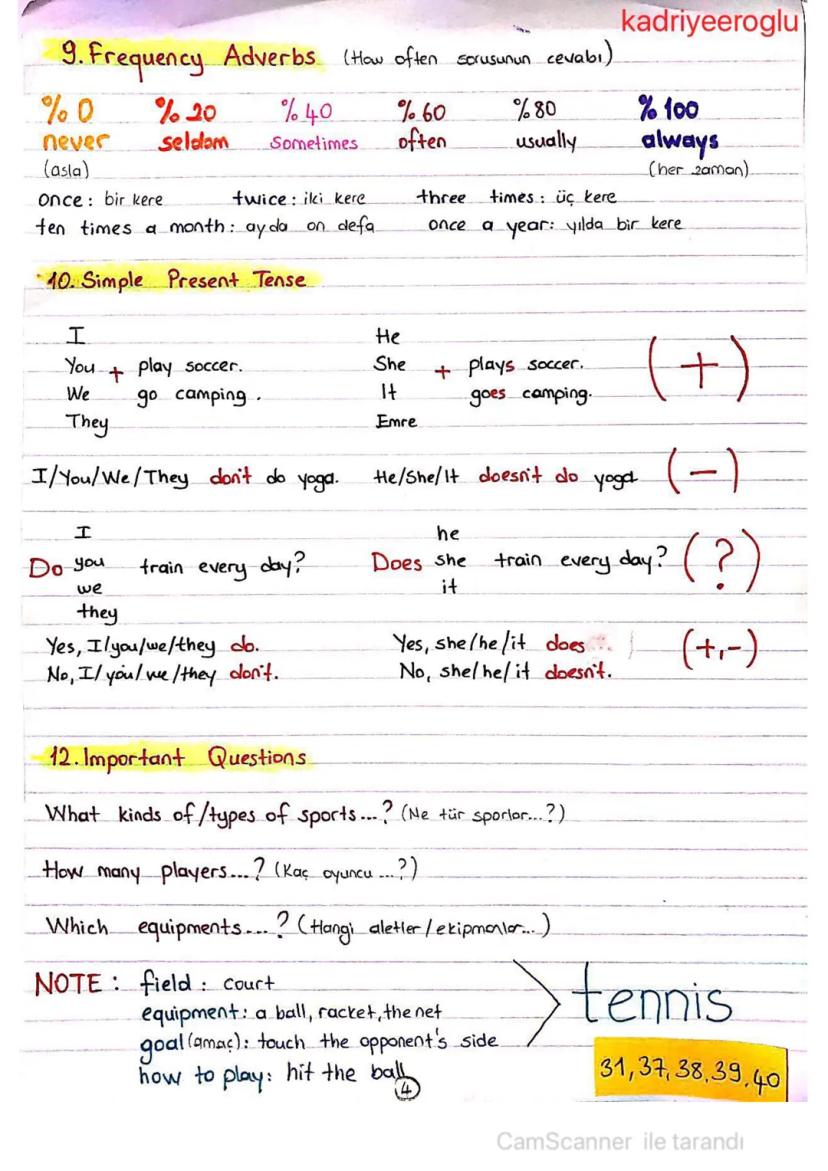 kadriyeeroglu
9. Frequency Adverbs (How often sorusunun cevabı)
%0 %20 %40 %60 %80 %100
never seldom sometimes often usually always
(asla) (her zaman)
once: bir kere twice: iki kere three times: üç kere
ten times a month: ayda on defa once a year: yılda bir kere
10. Simple Present Tense
I He
You + play soccer. She + plays soccer. (+)
We go camping. It goes camping.
They Emre
I/You/We/They don't do yoga. He/She/It doesn't do yoga (-)
I he
Do you train every day? Does she train every day? (?)
we it
they
Yes, I/you/we/they do. Yes, she/he/it does (+,-)
No, I/you/we/they don't. No, she/he/it doesn't.
12. Important Questions
What kinds of/types of sports...? (Ne tür sporlar...?)
How many players...? (Kaç oyuncu...?)
Which equipments...? (Hangi aletler/ekipmanlar...)
NOTE: field: court
equipment: a ball, racket, the net
goal (amaç): touch the opponent's side
how to play: hit the ball
tennis
31, 37, 38, 39, 40
4
CamScanner ile tarandı